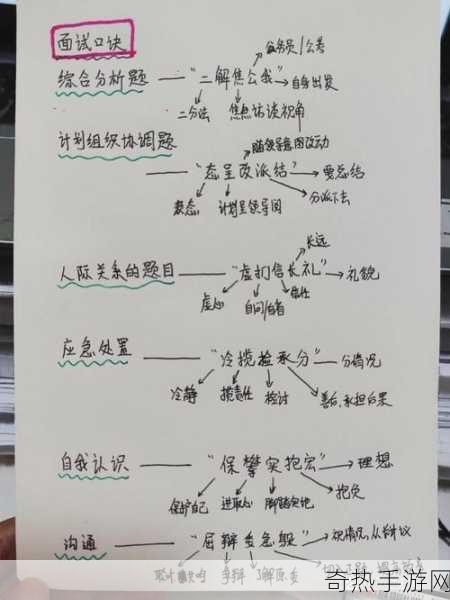 面试口诀
公务员/公考
综合分析题 — "二解焦公我" → 自身出发
二分法 焦点访谈视角
计划组织协调题
随领导意图改动
"态呈改派结" → 要总结
表态 计划呈领导阅 分派下去
长远
人际关系的题目 — "虚扪信长礼" → 礼貌
虚心 自问自省 信任
应急处置 — "冷揽检承分" — 分情况
冷静 揽责任 检讨 善后,承担后果
自我认识 — "保攀实抱宏" → 理想
保护自己 进取心 脚踏实地 抱负
沟通 — "屈辩委急疑" → 视情况,从科议
争辩 了解原委
奇热手游网